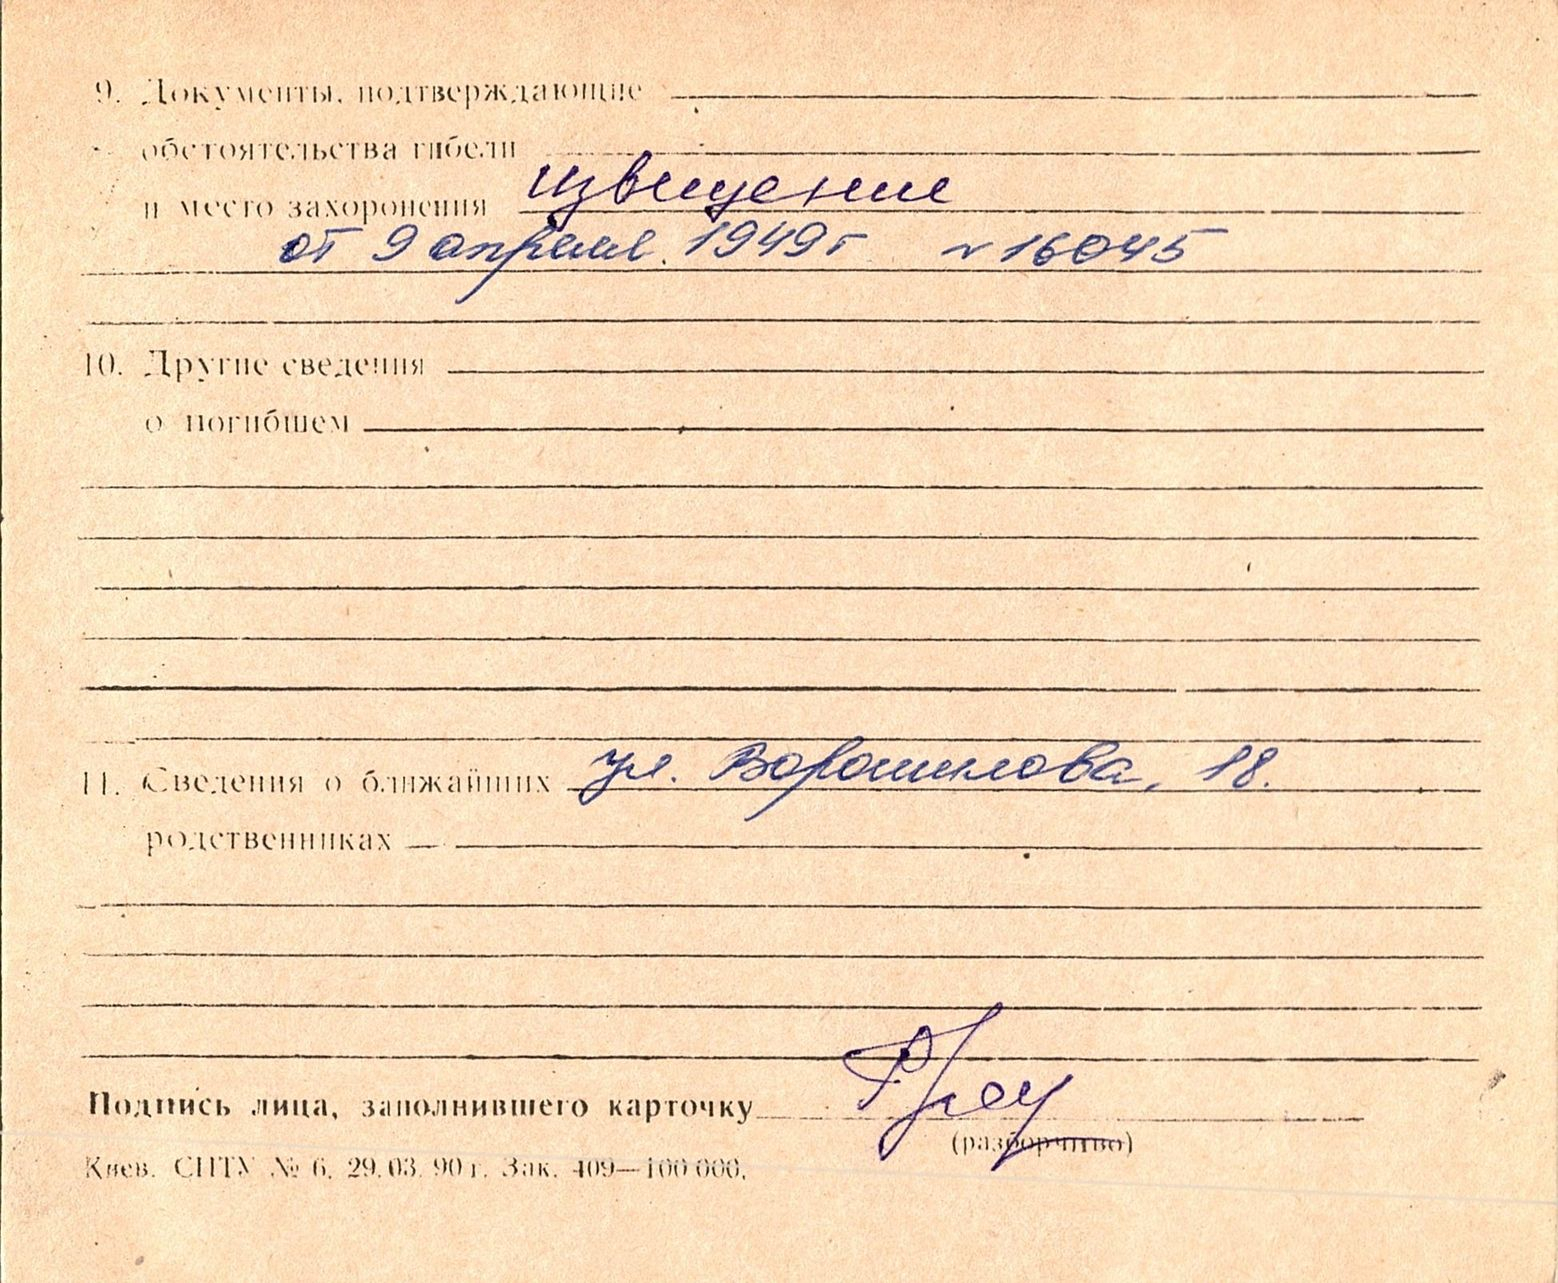 9. Документы, подтверждающие
обстоятельства гибели
и место захоронения извещение
от 9 апреля 1949г № 16045
10. Другие сведения
о погибшем
11. Сведения о ближайших ул. Ворошилова, 18.
родственниках
Подпись лица, заполнившего карточку
(разборчиво)
Киев. СПТУ № 6. 29.03.90 г. Зак. 409—100 000.